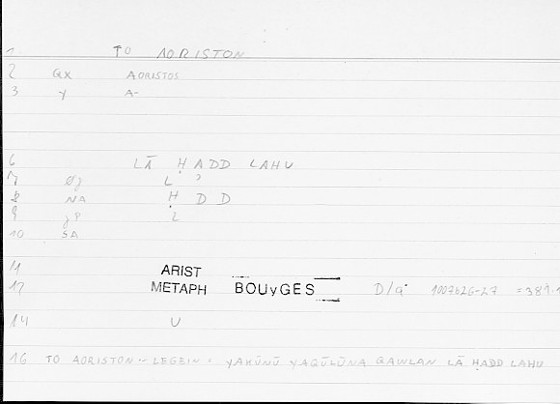 1 TO AORISTON
2 GX AORISTOS
3 Y A-
6 LĀ ḤADD LAHU
7 L ʾ
8 NA Ḥ D D
9 L
10 SA
11 ARIST
12 METAPH BOUYGES D/a 1007b26-27 =389.
14 U
16 TO AORISTON LEGEIN YAKŪNŪ YAQŪLŪNA QAWLAN LĀ ḤADD LAHU